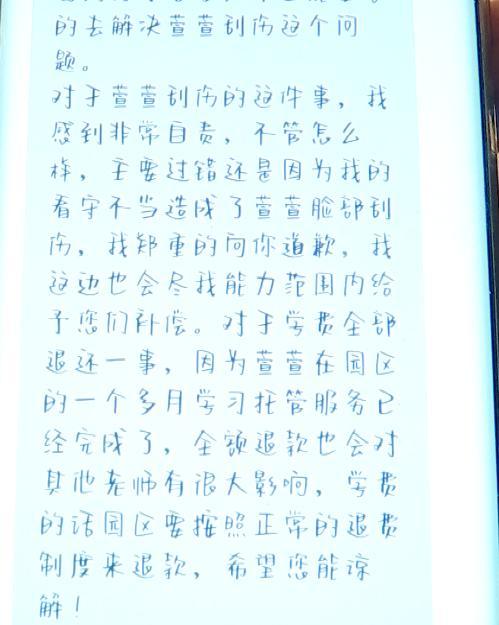 的去解决萱萱刮伤这个问
题。
对于萱萱刮伤的这件事，我
感到非常自责，不管怎么
样，主要过错还是因为我的
看守不当造成了萱萱脸部刮
伤，我郑重的向你道歉，我
这边也会尽我能力范围内给
予您们补偿。对于学费全部
退还一事，因为萱萱在园区
的一个多月学习托管服务已
经完成了，全额退款也会对
其他老师有很大影响，学费
的话园区要按照正常的退费
制度来退款，希望您能谅
解！